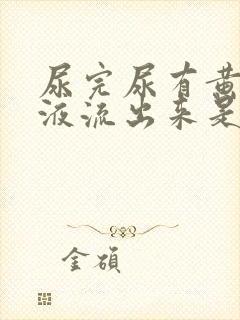 尿完尿有黄
液流出来是
金碩